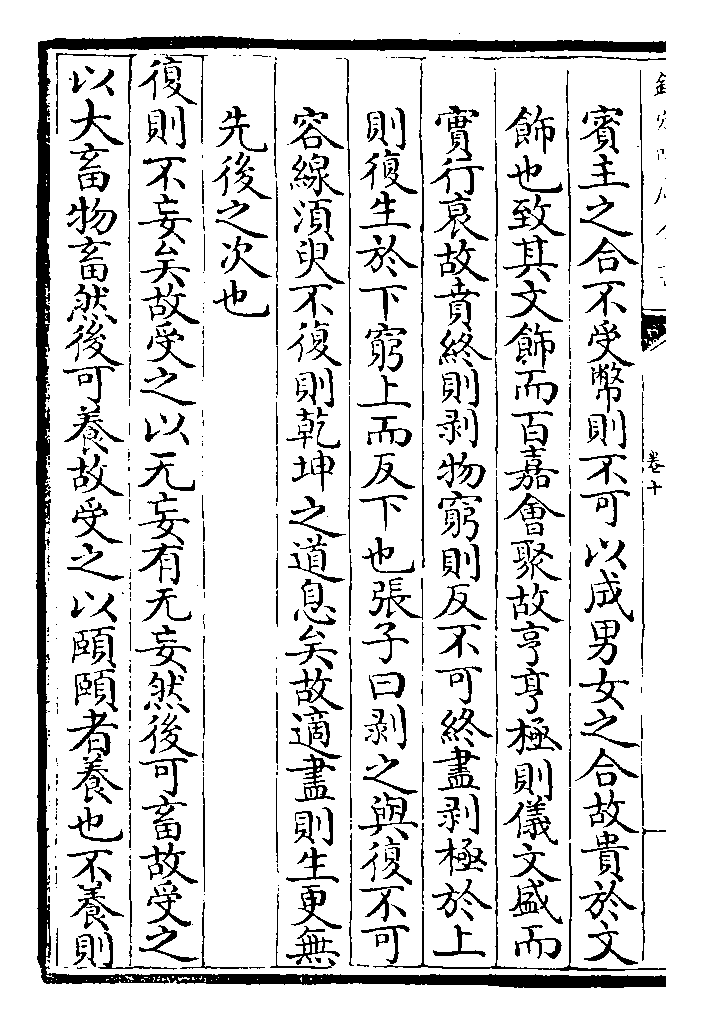 賓主之合不受幣則不可以成男女之合故貴於文
飾也致其文飾而百嘉㑹聚故亨亨極則儀文盛而
實行衰故賁終則剥物窮則反不可終盡剥極於上
則復生於下窮上而反下也張子曰剥之與復不可
容線湏㬰不復則乾坤之道息矣故適盡則生更無
先後之次也
復則不妄矣故受之以无妄有无妄然後可畜故受之
以大畜物畜然後可養故受之以頤頤者養也不養則
卷十